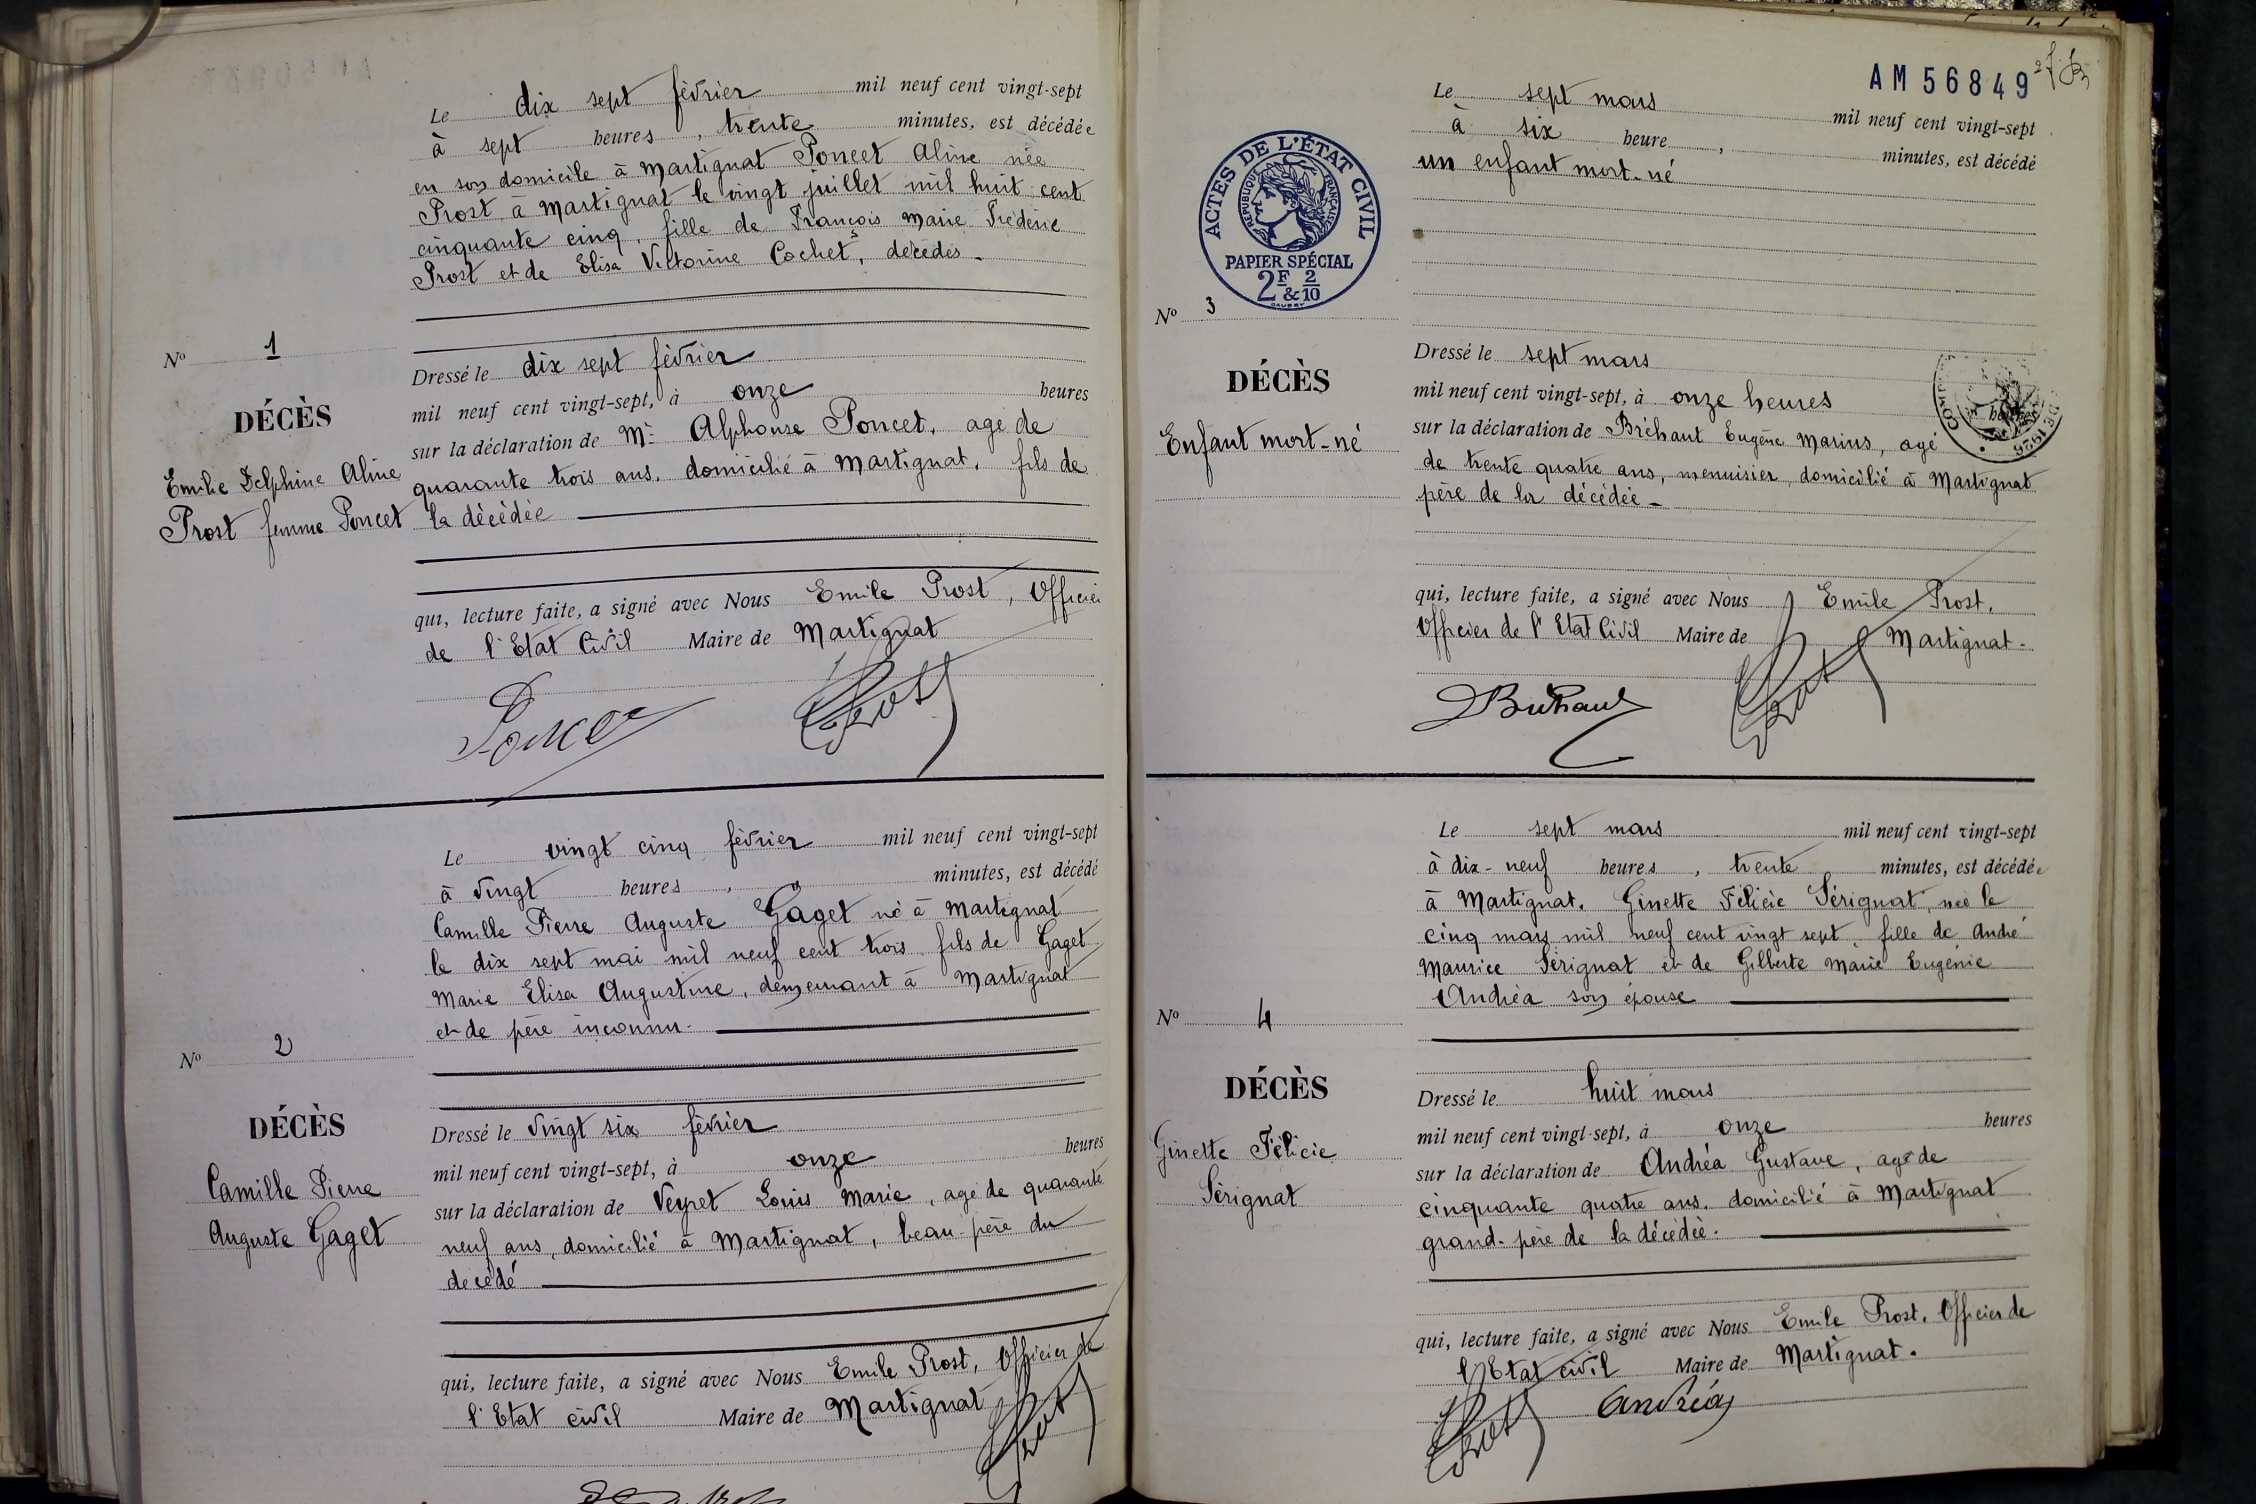 Le dix sept février mil neuf cent vingt-sept
à sept heures, trente minutes, est décédée
en son domicile à Martignat Poncet Aline née
Prost à Martignat le vingt juillet mil huit cent
cinquante cinq, fille de François Marie Frédéric
Prost et de Elisa Victorine Cochet, décédés -
N° 1
DÉCÈS
Emilie Delphine Aline
Prost femme Poncet
Dressé le dix sept février
mil neuf cent vingt-sept, à onze heures
sur la déclaration de Mr Alphonse Poncet, agé de
quarante trois ans, domicilié à Martignat, fils de
la décédée
qui, lecture faite, a signé avec Nous Emile Prost, Officier
de l'Etat Civil Maire de Martignat
Poncet Prost
Le vingt cinq février mil neuf cent vingt-sept
à vingt heures, " minutes, est décédé
Camille Pierre Auguste Gaget né à Martignat
le dix sept mai mil neuf cent trois fils de Gaget
Marie Elisa Augustine, demeurant à Martignat
et de père inconnu.
N° 2
DÉCÈS
Camille Pierre
Auguste Gaget
Dressé le vingt six février
mil neuf cent vingt-sept, à onze heures
sur la déclaration de Veyret Louis Marie, agé de quarante
neuf ans, domicilié à Martignat, beau-père du
décédé
qui, lecture faite, a signé avec Nous Emile Prost, Officier de
l'Etat civil Maire de Martignat
Prost
AM 56849
Le sept mars mil neuf cent vingt-sept
à six heure, minutes, est décédé
un enfant mort-né
ACTES DE L'ÉTAT CIVIL
RÉPUBLIQUE FRANÇAISE
PAPIER SPÉCIAL
2F & 2/10
N° 3
DÉCÈS
Enfant mort-né
Dressé le sept mars
mil neuf cent vingt-sept, à onze heures
sur la déclaration de Bréhaut Eugène Marius, agé
de trente quatre ans, menuisier, domicilié à Martignat
père de la décédée -
qui, lecture faite, a signé avec Nous Emile Prost,
Officier de l'Etat Civil Maire de Martignat -
Bréhaut Prost
Le sept mars mil neuf cent vingt-sept
à dix-neuf heures, trente minutes, est décédée
à Martignat, Ginette Félicie Sérignat, née le
cinq mars mil neuf cent vingt sept, fille de André
Maurice Sérignat et de Gilberte Marie Eugénie
Andréa son épouse
N° 4
DÉCÈS
Ginette Félicie
Sérignat
Dressé le huit mars
mil neuf cent vingt-sept, à onze heures
sur la déclaration de Andréa Gustave, agé de
cinquante quatre ans, domicilié à Martignat
grand-père de la décédée.
qui, lecture faite, a signé avec Nous Emile Prost, Officier de
l'Etat civil Maire de Martignat.
Prost Andréa